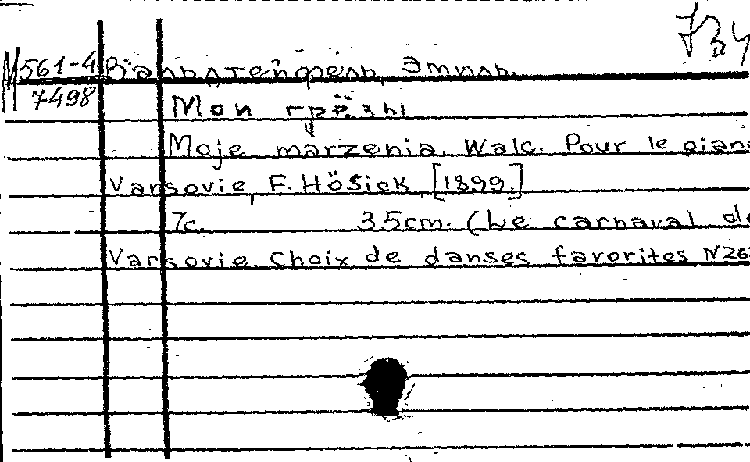 М561-4 Вальдтейфель, Эмиль.
7498 Мои грёзы
Moje marzenia. Walc. Pour le pian
Varsovie, F. Hösick, [1899.]
7с. 35cm. (Le carnaval de
Varsovie. Choix de danses favorites N26